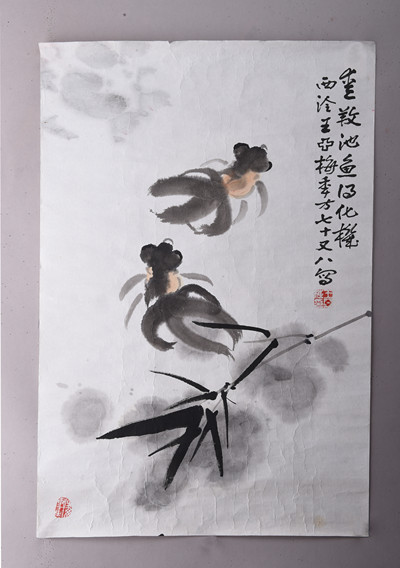 數池魚得化機
西泠王亞梅年方七十又八寫